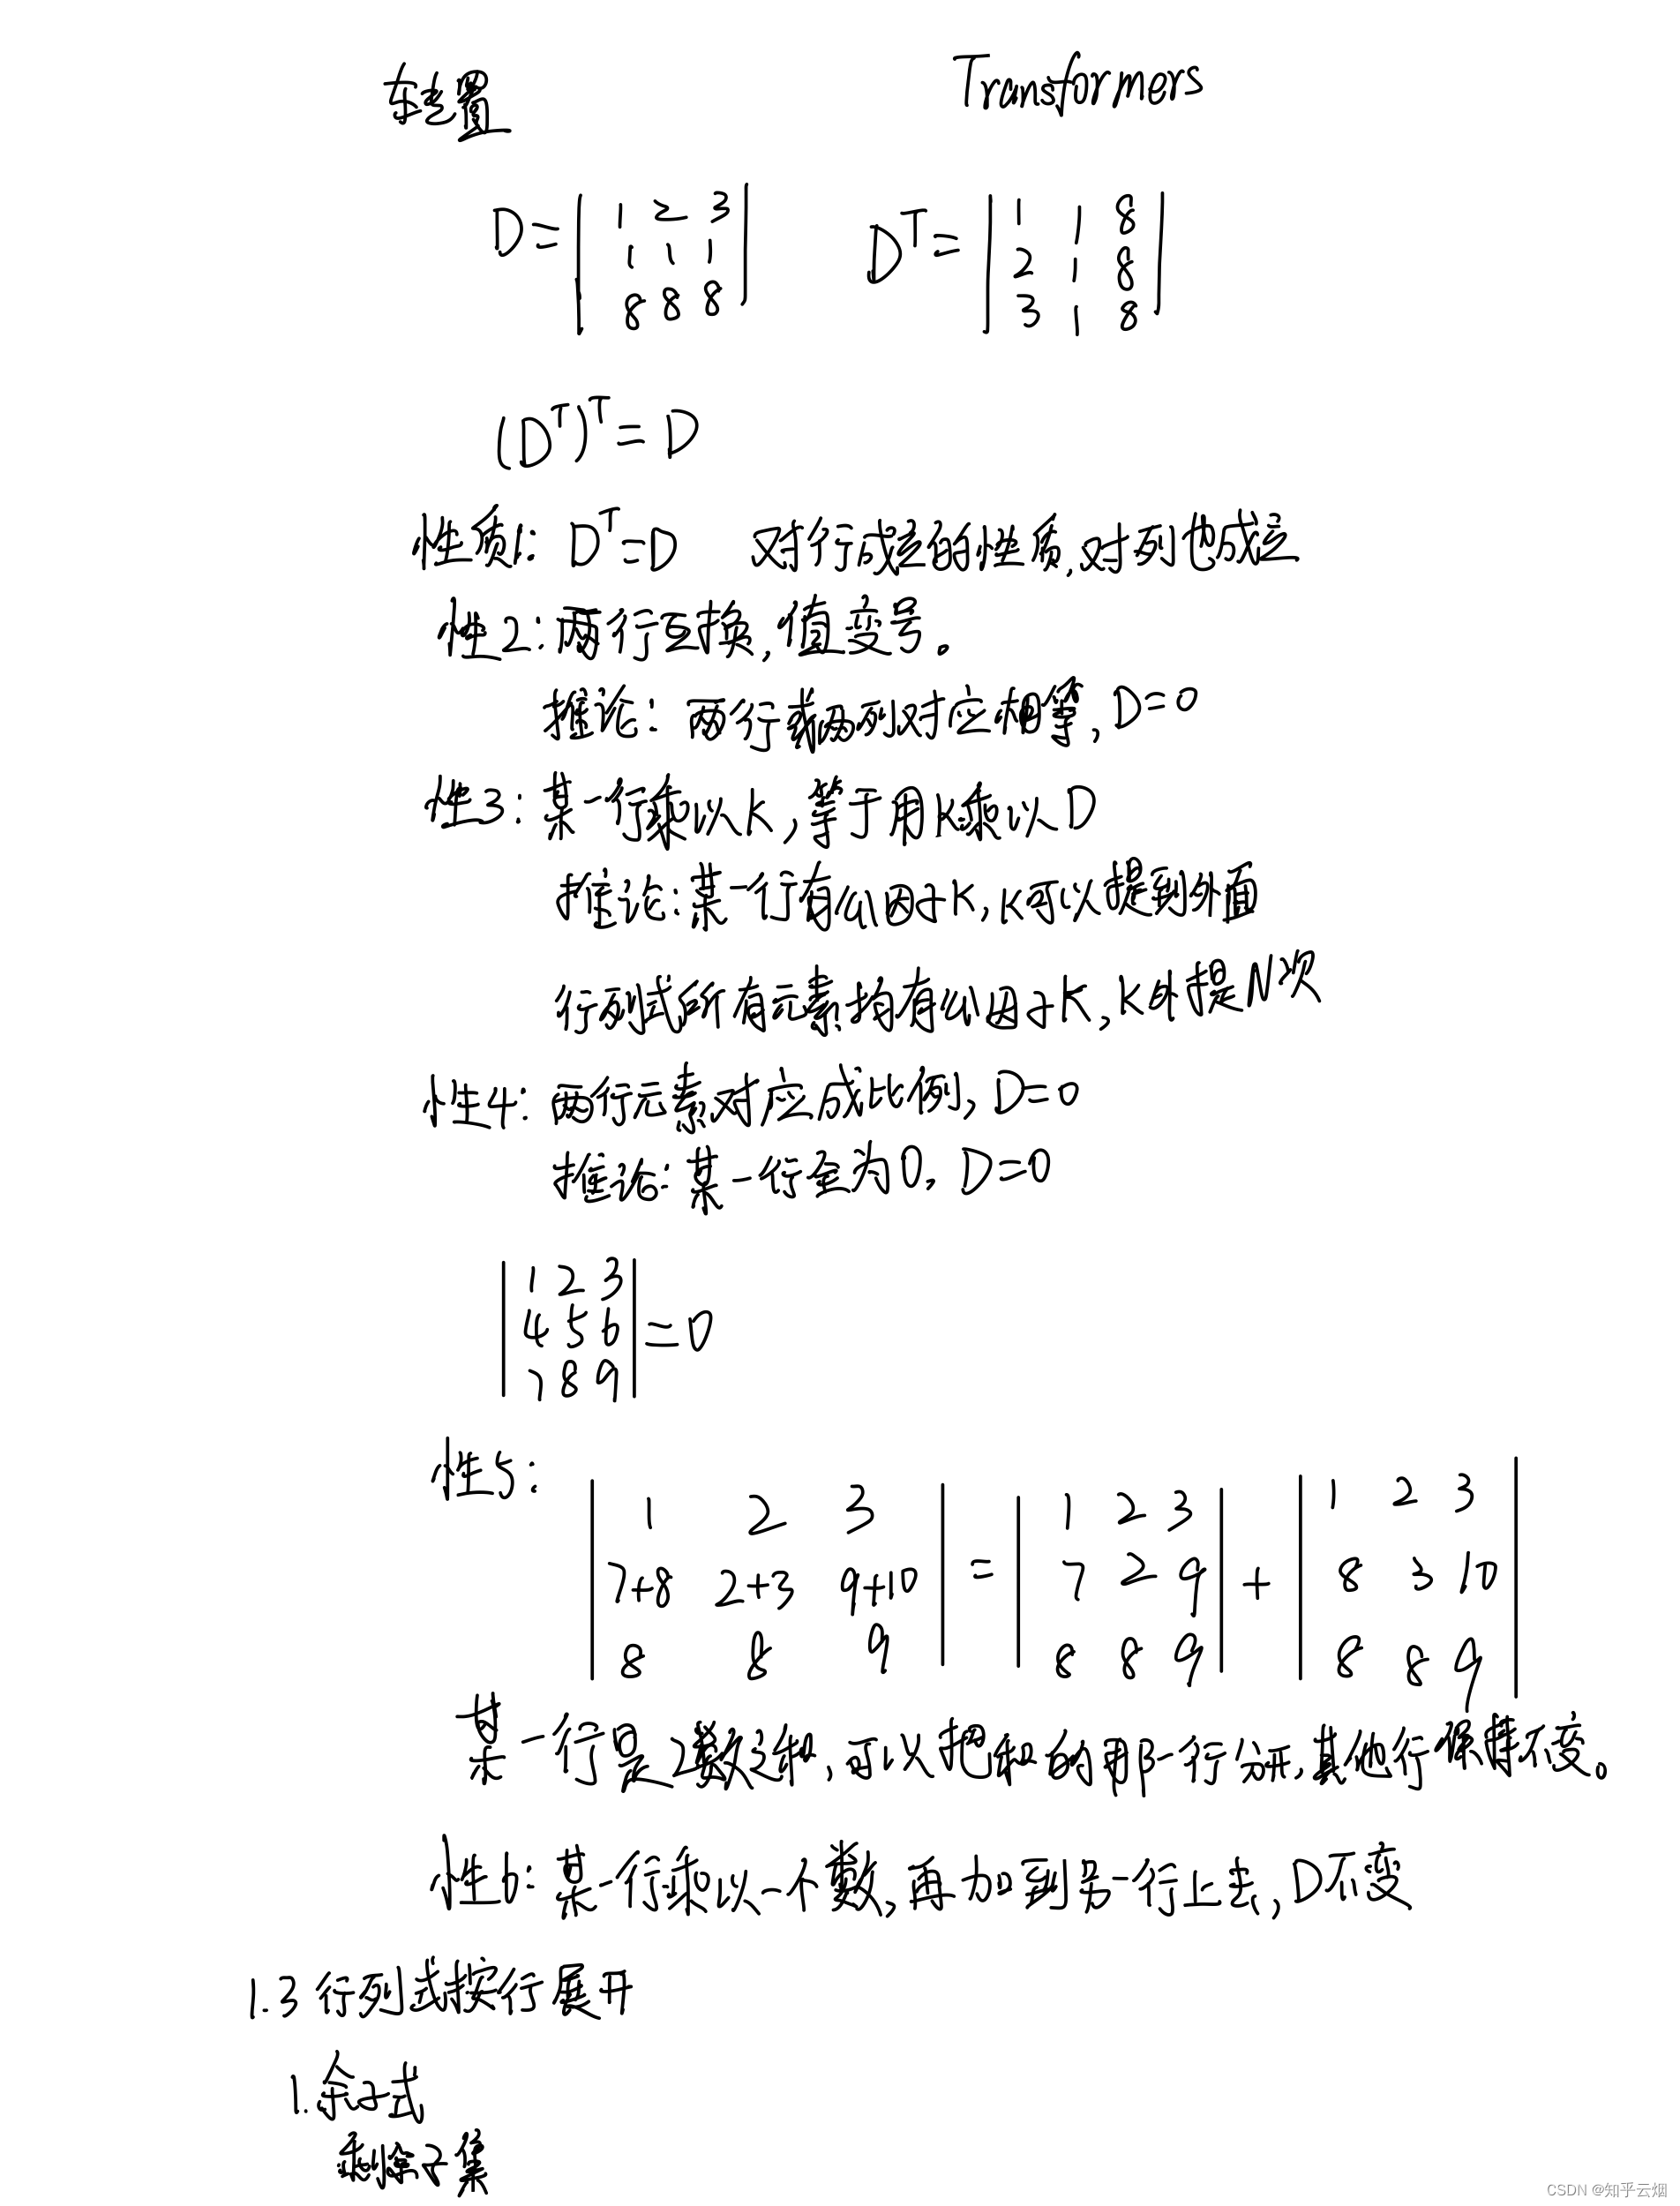 转置 Transformers
D= | 1 2 3 | D^T= | 1 1 8 |
| 1 1 1 | | 2 1 8 |
| 8 8 8 | | 3 1 8 |
(D^T)^T=D
性质1: D^T=D 对行成立的性质,对列也成立
性2:两行互换,值变号。
推论:两行或两列对应相等,D=0
性3:某一行乘以K,等于用K乘以D
推论:某一行有公因子K,K可以提到外面
行列式所有元素均有公因子K,K外提N次
性4:两行元素对应成比例,D=0
推论:某一行全为0,D=0
| 1 2 3 |
| 4 5 6 | =0
| 7 8 9 |
性5:
| 1 2 3 | | 1 2 3 | | 1 2 3 |
| 7+8 2+3 9+10 | = | 7 2 9 | + | 8 3 10 |
| 8 8 9 | | 8 8 9 | | 8 8 9 |
某一行是2数之和,可以把和的那一行分开,其他行保持不变。
性6:某一行乘以一个数,再加到另一行上去,D不变
1.3 行列式按行展开
1.余子式
剩余子集
CSDN @知乎云烟